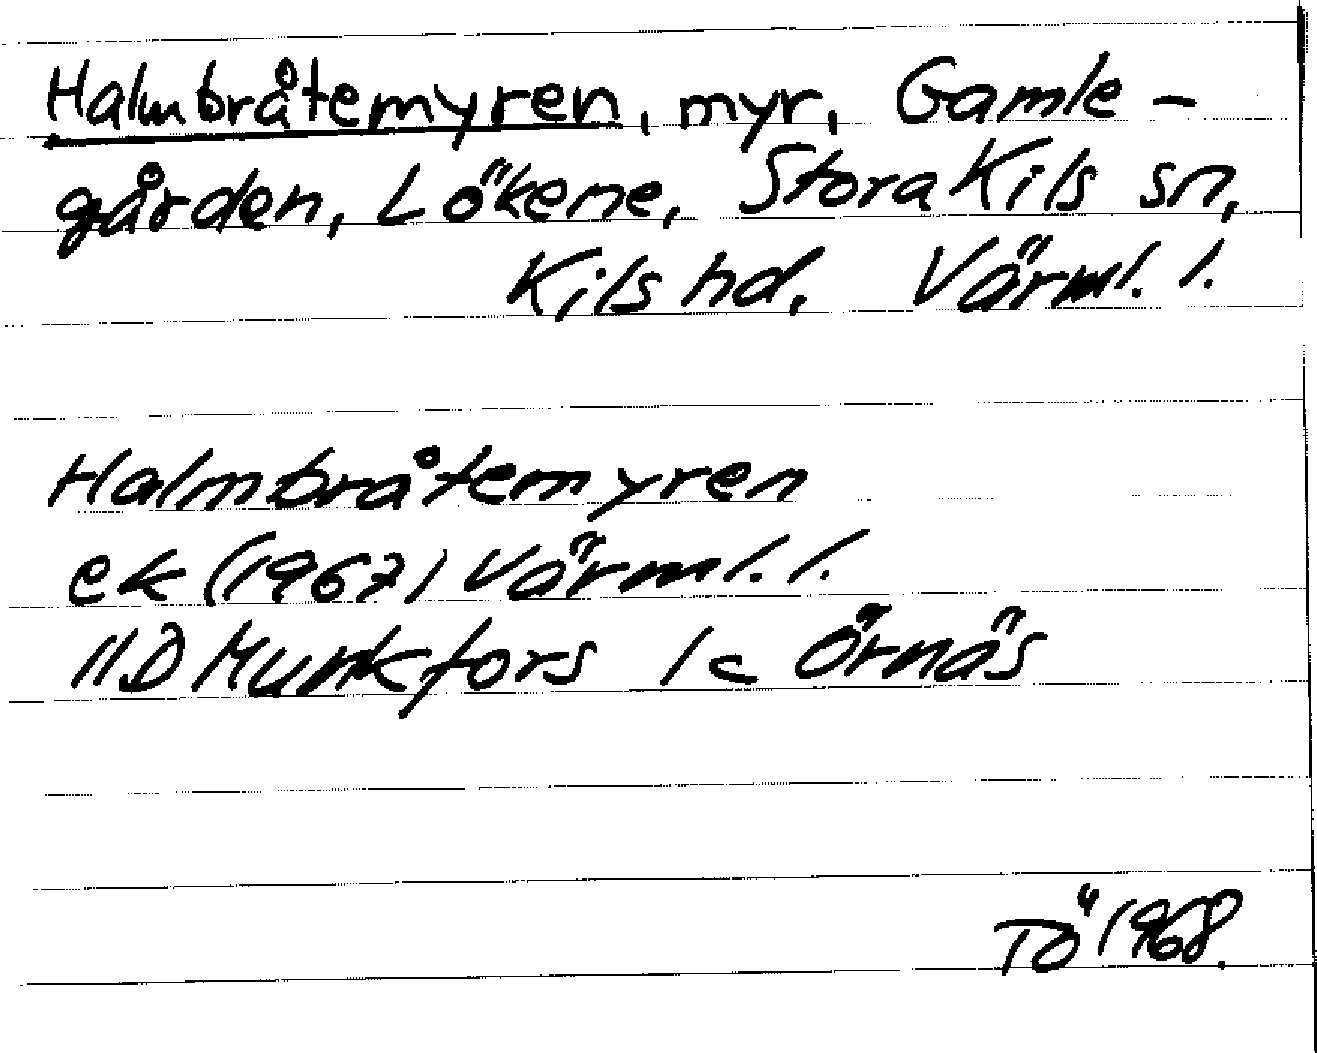 Halmbråtemyren, myr, Gamle-
gården, Lökene, Stora Kils sn,
Kils hd. Värml. l.
Halmbråtemyren
ek (1967) Värml. l.
11D Munkfors 1c Örnäs
TÖ 1968.